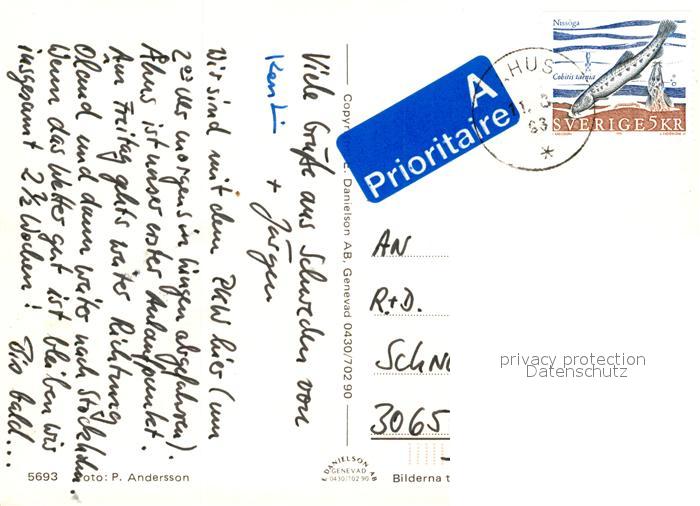 Viele Grüße aus Schweden von
Kerstin
+ Jürgen
Wir sind mit dem PKW hier (um
2°° Uhr morgens in Lingen abgefahren).
Åhus ist unser erster Anlaufpunkt.
Am Freitag gehts weiter Richtung
Öland und dann weiter nach Stockholm.
Wenn das Wetter gut ist bleiben wir
insgesamt 2½ Wochen! Bis bald...
5693 Foto: P. Andersson
Danielson AB, Genevad 0430/702 90
DANIELSON AB
GENEVAD
0430/702 90
Bilderna
A
Prioritaire
HUS
Nissöga
Cobitis taenia
SVERIGE 5 KR
AN
R.+D.
3065
privacy protection
Datenschutz